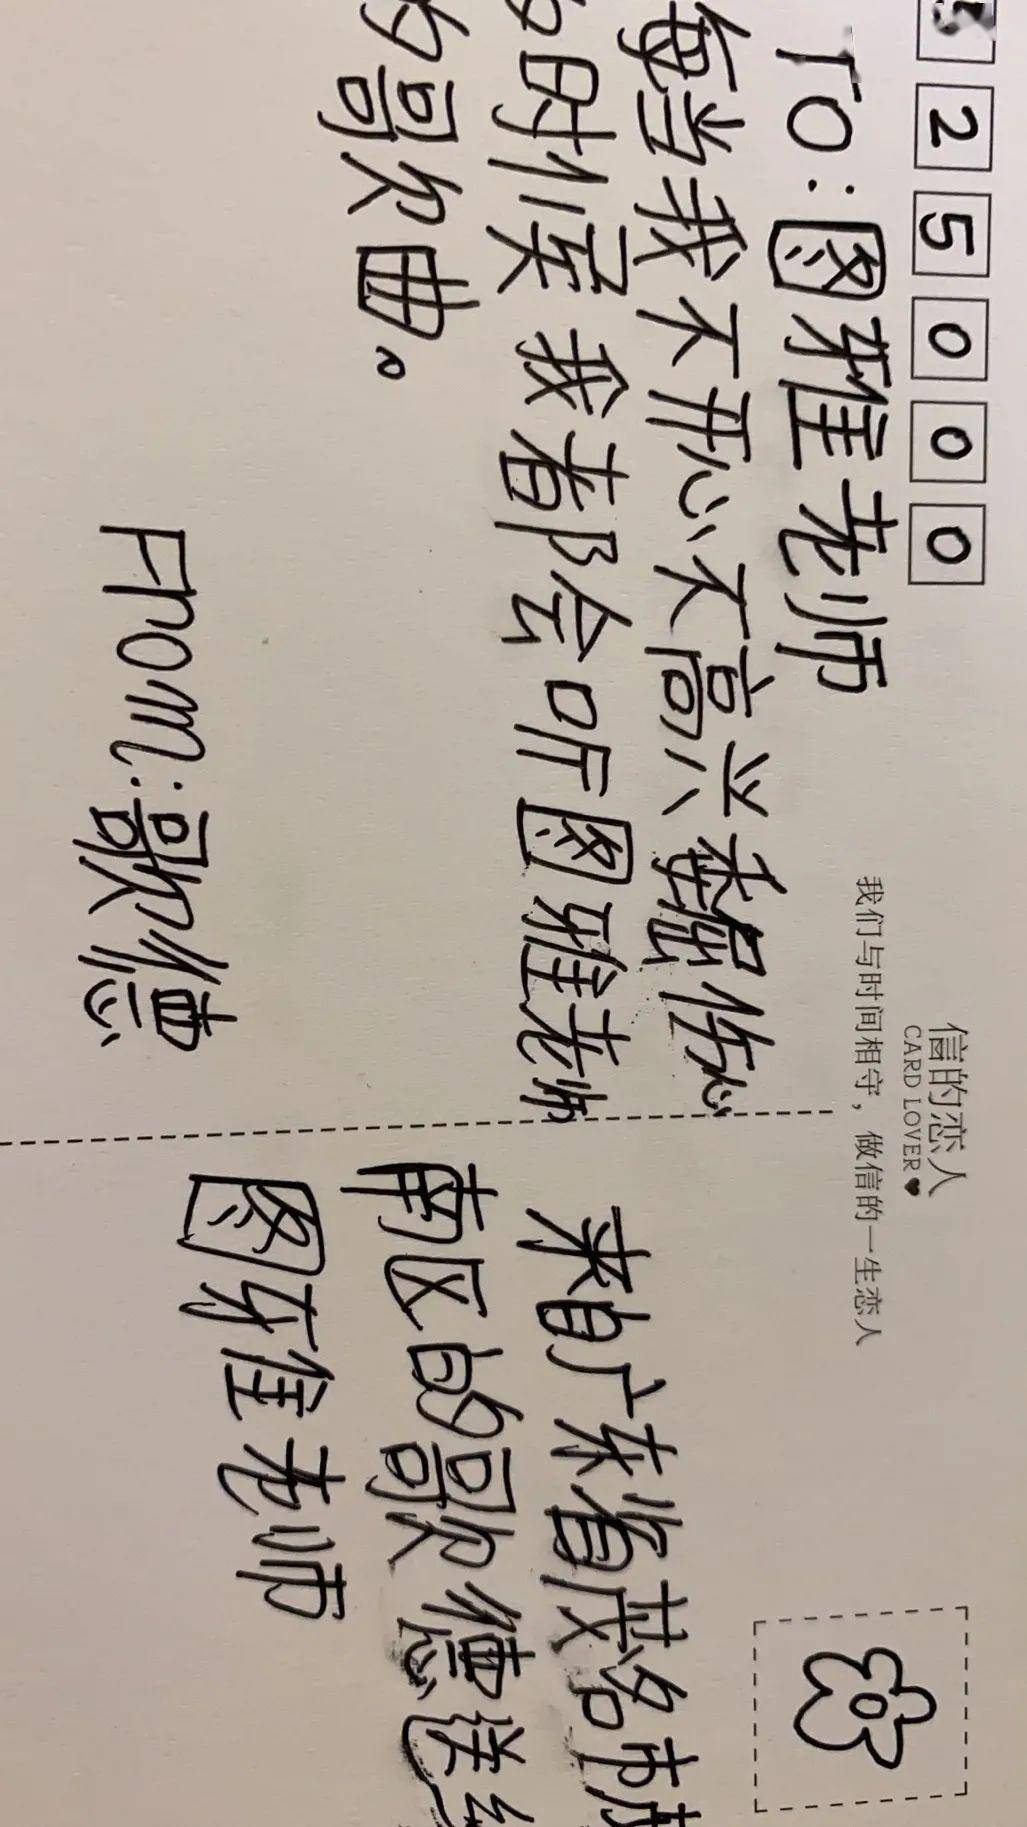 525000
信的恋人
CARD LOVER
我们与时间相守，做信的一生恋人
TO:图雅老师
每当我不开心不高兴委屈伤心
的时候我都会听图雅老师
的歌曲。
From:歌德
来自广东省茂名市茂
南区的歌德送给
图雅老师